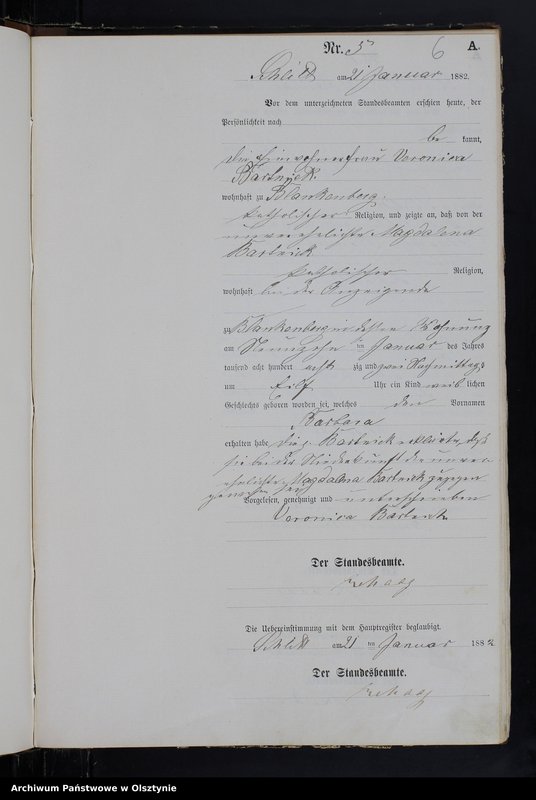 Nr. 5 6 A.
Schlitt am 21 Januar 1882.
Vor dem unterzeichneten Standesbeamten erschien heute, der
Persönlichkeit nach
be kannt,
die Einwohnerfrau Veronica
Bastrick
wohnhaft zu Blankenberg
katholischer Religion, und zeigte an, daß von der
unverehelichte Magdalena
Bastrick
katholischer Religion,
wohnhaft bei der Anzeigende
zu Blankenberg in dessen Wohnung
am Neunzehn ten Januar des Jahres
tausend acht hundert acht zig und zwei Nachmittags
um Uhr ein Kind weib lichen
Geschlechts geboren worden sei, welches den Vornamen
Barbara
erhalten habe, die p. Bastrick erklärte, daß
sie bei der Niederkunft der unver
ehelichte Magdalena Bastrick zugegen
gewesen sei
Vorgelesen, genehmigt und unterschrieben
Veronica Bastrick
Der Standesbeamte.
Die Uebereinstimmung mit dem Hauptregister beglaubigt.
Schlitt am 21 ten Januar 1882
Der Standesbeamte.
Archiwum Państwowe w Olsztynie